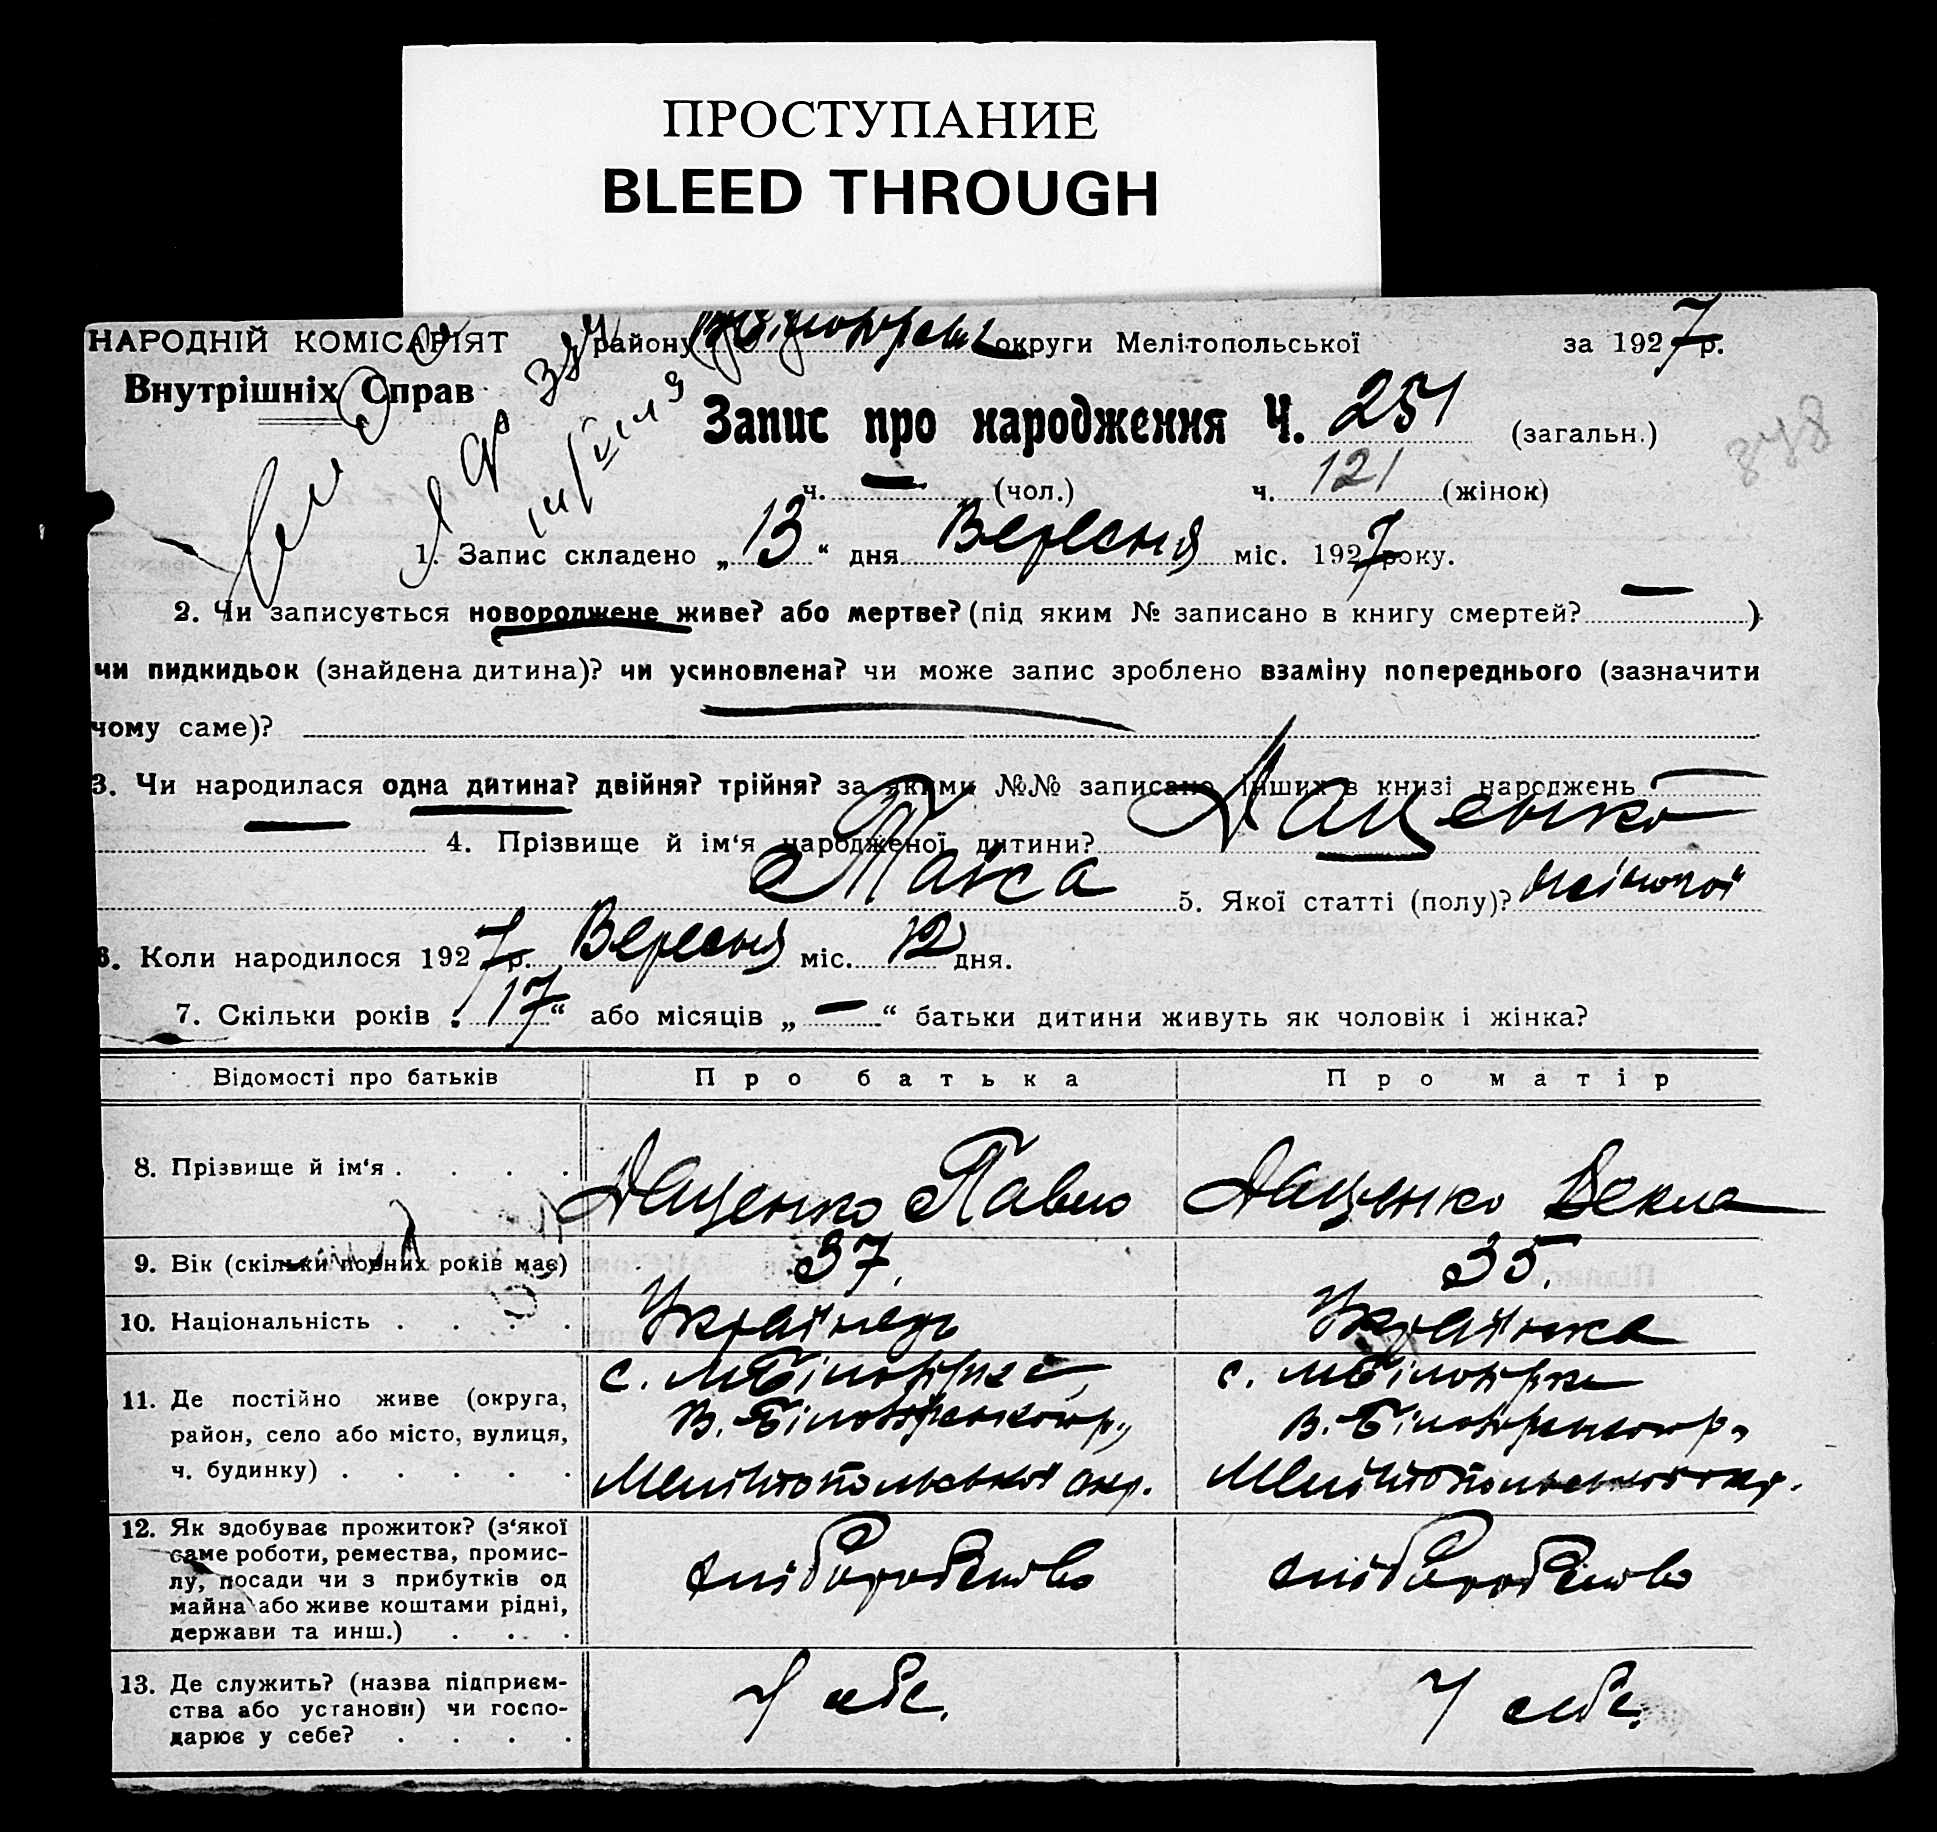 ПРОСТУПАНИЕ
BLEED THROUGH
НАРОДНІЙ КОМІСАРІЯТ району округи Мелітопольської за 1927 р.
Внутрішніх Справ
Запис про народження Ч. 251 (загальн.)
878
ч. — (чол.) ч. 121 (жінок)
1. Запис складено „13“ дня Вересня міс. 1927 року.
2. Чи записується новороджене живе? або мертве? (під яким № записано в книгу смертей? — )
чи пидкидьок (знайдена дитина)? чи усиновлена? чи може запис зроблено взаміну попереднього (зазначити
чому саме)?
3. Чи народилася одна дитина? двійня? трійня? за якими №№ записано інших в книзі народжень —
— 4. Прізвище й ім‘я народженої дитини? Даценко
Таїса 5. Якої статті (полу)? жіночої
6. Коли народилося 1927 р. Вересня міс. 12 дня.
7. Скільки років „17“ або місяців „—“ батьки дитини живуть як чоловік і жінка?
Відомості про батьків Про батька Про матір
8. Прізвище й ім‘я . . . . Даценко Павло Даценко Векла
9. Вік (скільки повних років має) 37. 35.
10. Національність . . . . Українець Українка
11. Де постійно живе (округа,
район, село або місто, вулиця,
ч. будинку) . . . . .
с. М Білозірка, с. М Білозірка
В. Білозірського р., В. Білозірського р.,
Мелітопольської окр. Мелітопольської окр.
12. Як здобуває прожиток? (з‘якої
саме роботи, ремества, промис-
лу, посади чи з прибутків од
майна або живе коштами рідні,
держави та инш.) . . .
хліборобство хліборобство
13. Де служить? (назва підприєм-
ства або установи) чи госпо-
дарює у себе? . . . .
У себе. У себе.